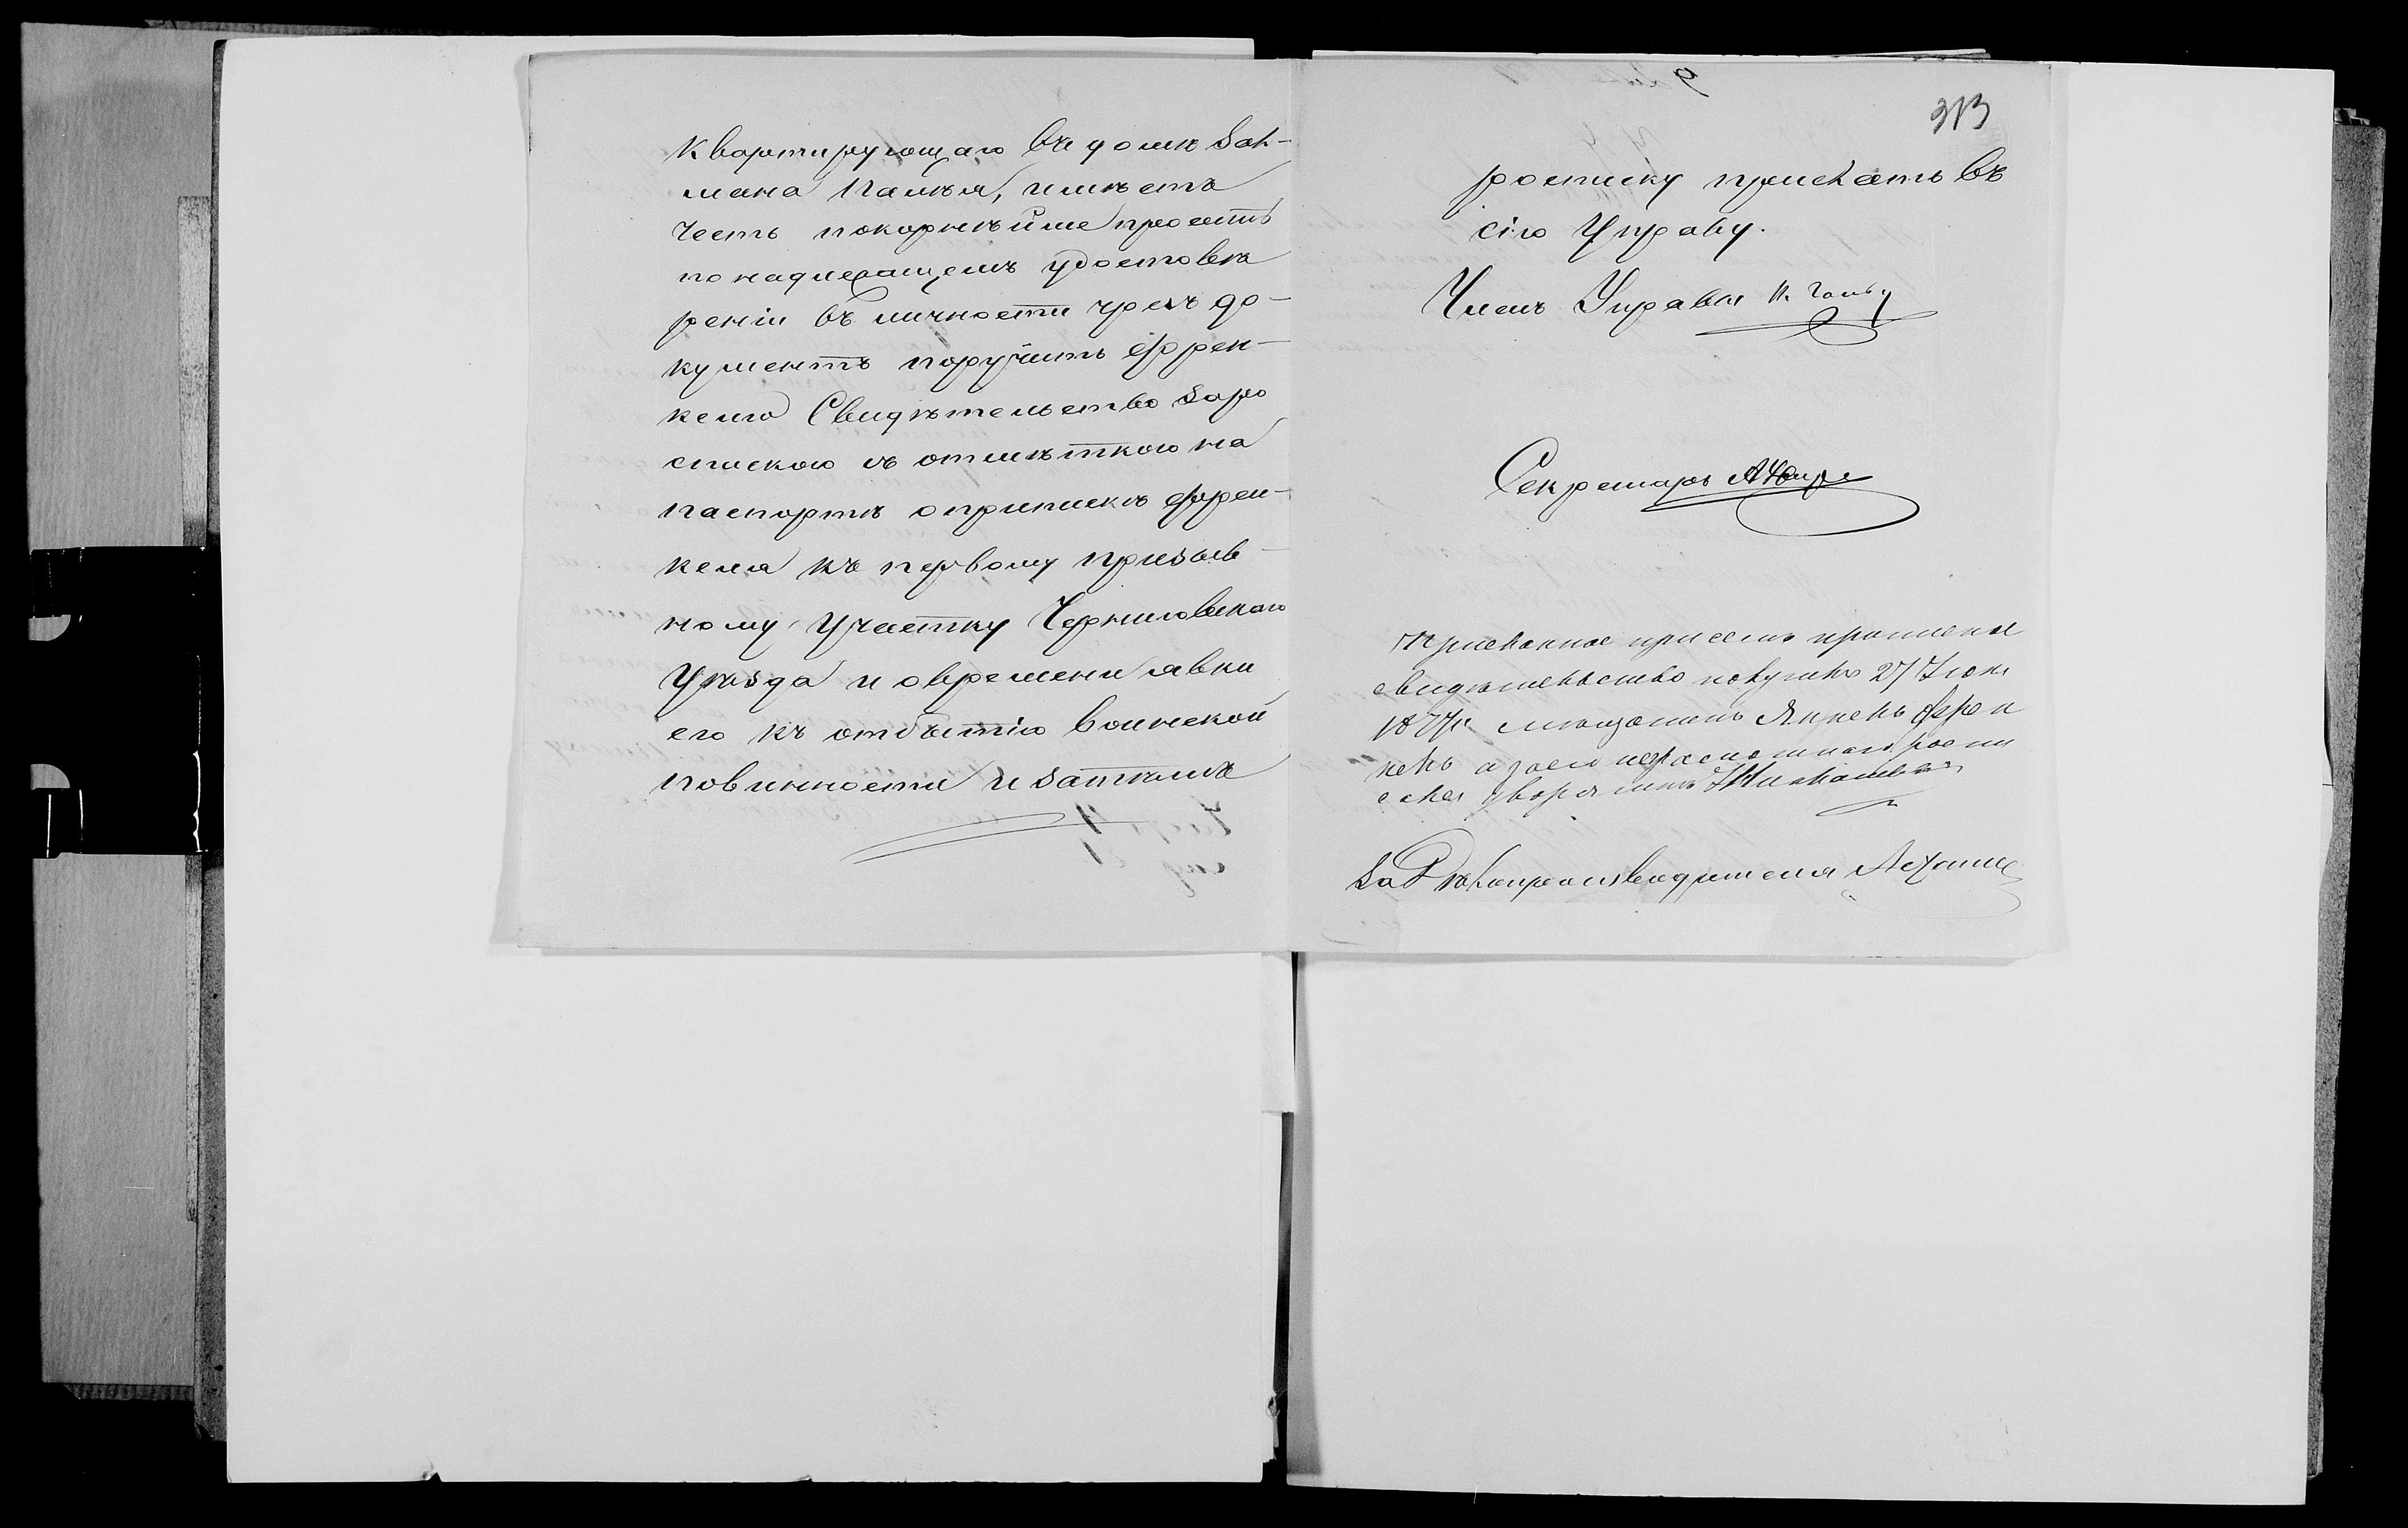 квартирующаго въ домѣ Зак-
мана Палѣя, имѣетъ
честь покорнѣйше просить
по надлежащемъ удостовѣ
реніи въ личности чрезъ до-
кументъ поручить Френ-
келю Свидѣтельство заро
спискою съ отмѣткою на
паспортѣ о припискѣ Френ-
келя къ первому призыв-
ному Участку Черниговскаго
Уѣзда и о времени явки
его къ отбытію воинской
повинности и затѣмъ
313
росписку прислать въ
сію Управу.
Членъ Управы
Секретарь
Присланное при семъ прошеніе
свидѣтельство получилъ 27 Іюня
187 г. мѣщанинъ Янкель Френ
кель а за его неграмотнаго роспи
сался дворянинъ
За Дѣлопроизводителя